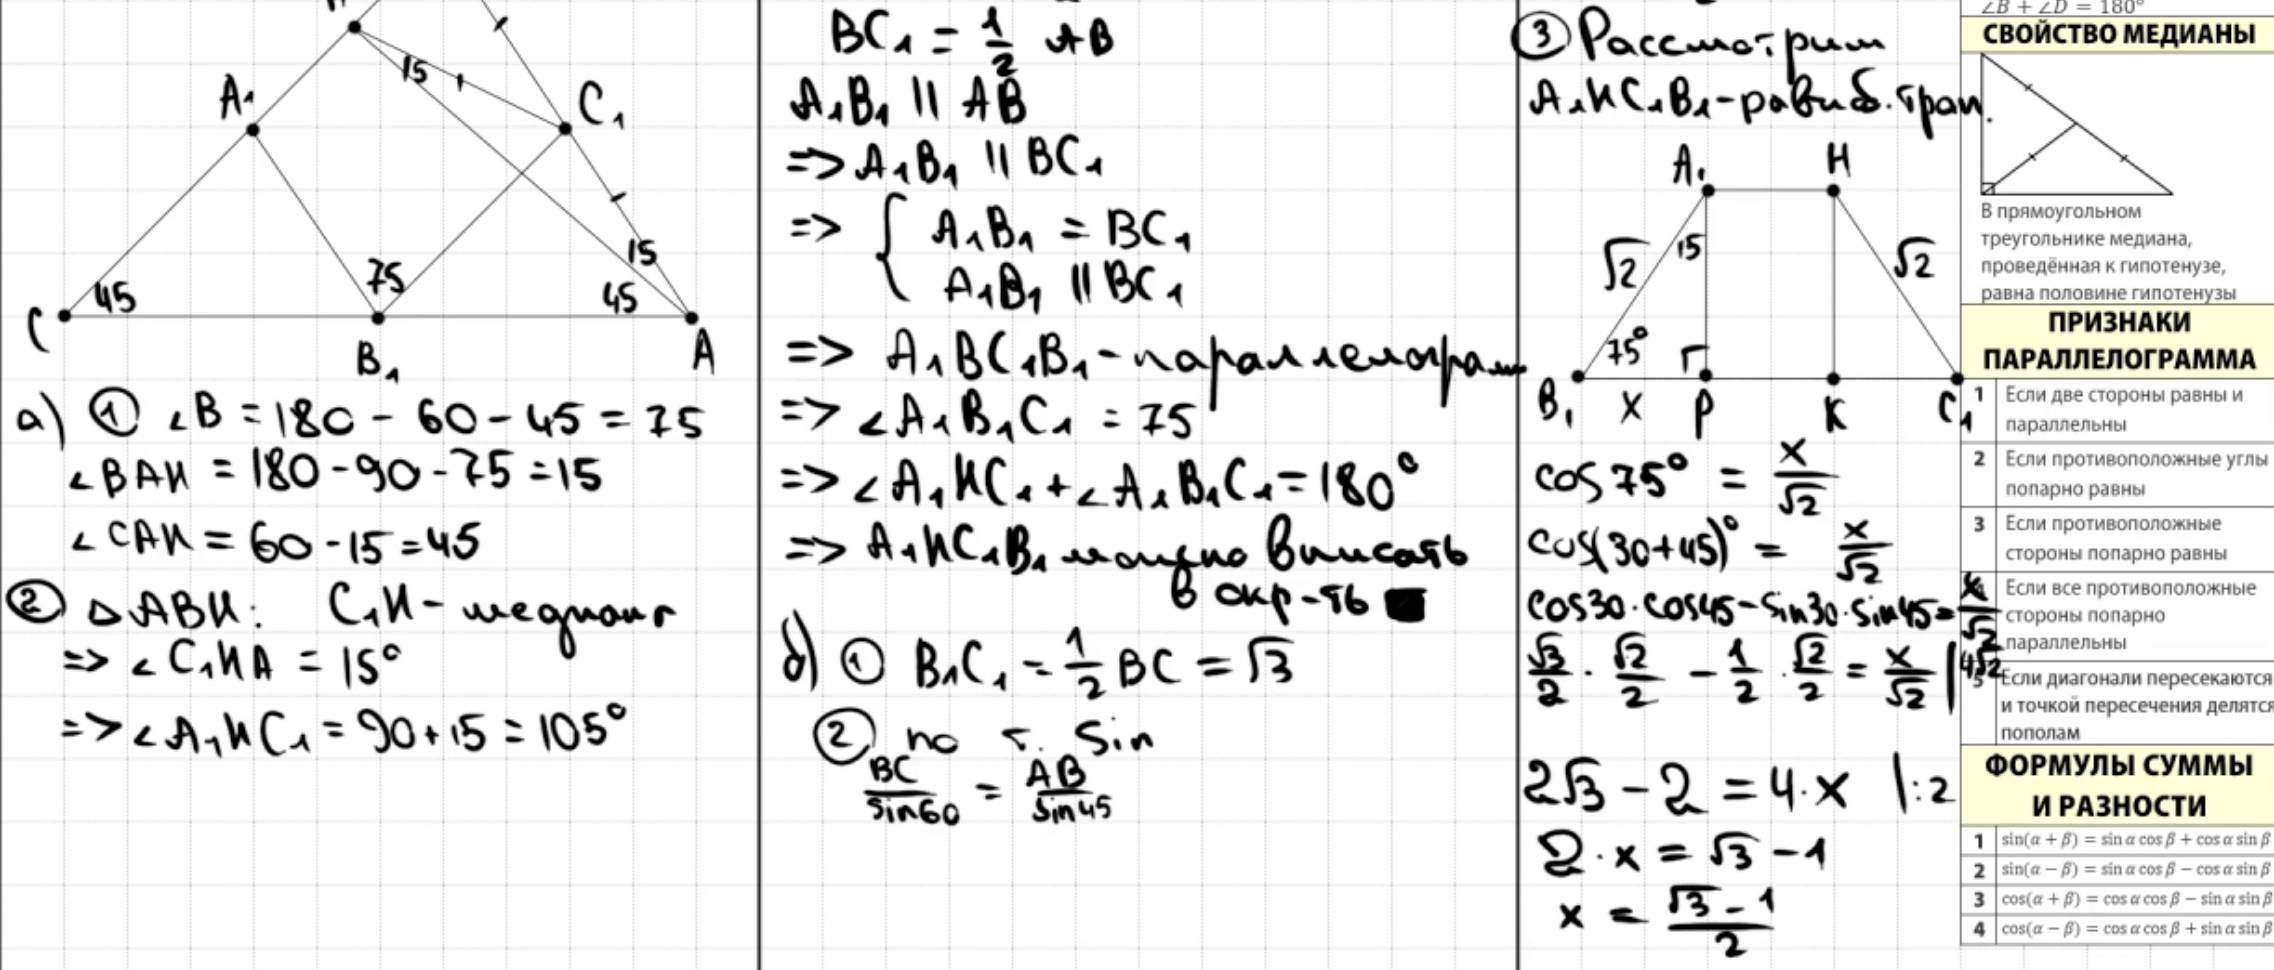 A₁
15
C₁
15
75
45
45
C
B₁
A
а) ① ∠B = 180 - 60 - 45 = 75
∠BAH = 180 - 90 - 75 = 15
∠CAH = 60 - 15 = 45
② △ABH: C₁H - медиана
=> ∠C₁HA = 15°
=> ∠A₁HC₁ = 90 + 15 = 105°
BC₁ = 1/2 AB
A₁B₁ || AB
=> A₁B₁ || BC₁
=> { A₁B₁ = BC₁
A₁B₁ || BC₁
=> A₁BC₁B₁ - параллелограмм
=> ∠A₁B₁C₁ = 75
=> ∠A₁HC₁ + ∠A₁B₁C₁ = 180°
=> A₁HC₁B₁ можно вписать
в окр-ть
б) ① B₁C₁ = 1/2 BC = √3
② по т. sin
BC/sin60 = AB/sin45
③ Рассмотрим
A₁HC₁B₁ - равноб. трап.
A₁ H
√2 15 √2
75°
B₁ x P K C₁
cos 75° = x/√2
cos(30+45)° = x/√2
cos30 · cos45 - sin30 · sin45 = x/√2
√3/2 · √2/2 - 1/2 · √2/2 = x/√2 | 4√2
2√3 - 2 = 4 · x |:2
2 · x = √3 - 1
x = (√3 - 1)/2
∠B + ∠D = 180°
СВОЙСТВО МЕДИАНЫ
В прямоугольном
треугольнике медиана,
проведённая к гипотенузе,
равна половине гипотенузы
ПРИЗНАКИ
ПАРАЛЛЕЛОГРАММА
1 Если две стороны равны и
параллельны
2 Если противоположные углы
попарно равны
3 Если противоположные
стороны попарно равны
Если все противоположные
стороны попарно
параллельны
5 Если диагонали пересекаются
и точкой пересечения делятся
пополам
ФОРМУЛЫ СУММЫ
И РАЗНОСТИ
1 sin(α + β) = sin α cos β + cos α sin β
2 sin(α − β) = sin α cos β − cos α sin β
3 cos(α + β) = cos α cos β − sin α sin β
4 cos(α − β) = cos α cos β + sin α sin β